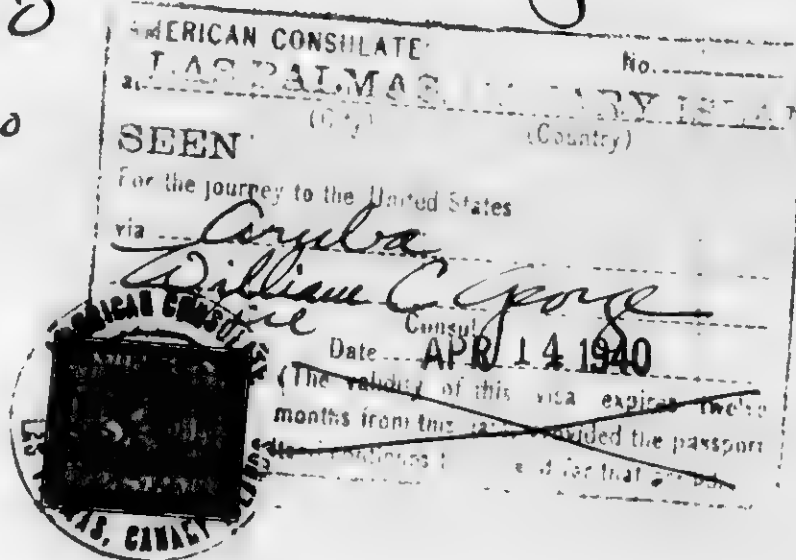 AMERICAN CONSULATE No.
at LAS PALMAS, CANARY ISLAN
(City) (Country)
SEEN
For the journey to the United States
via Aruba
William C George
Vice Consul
Date APR 14 1940
(The validity of this visa expires twelve
months from this date provided the passport
continues to be valid for that period)
AMERICAN CONSULATE
LAS PALMAS, CANARY ISLANDS